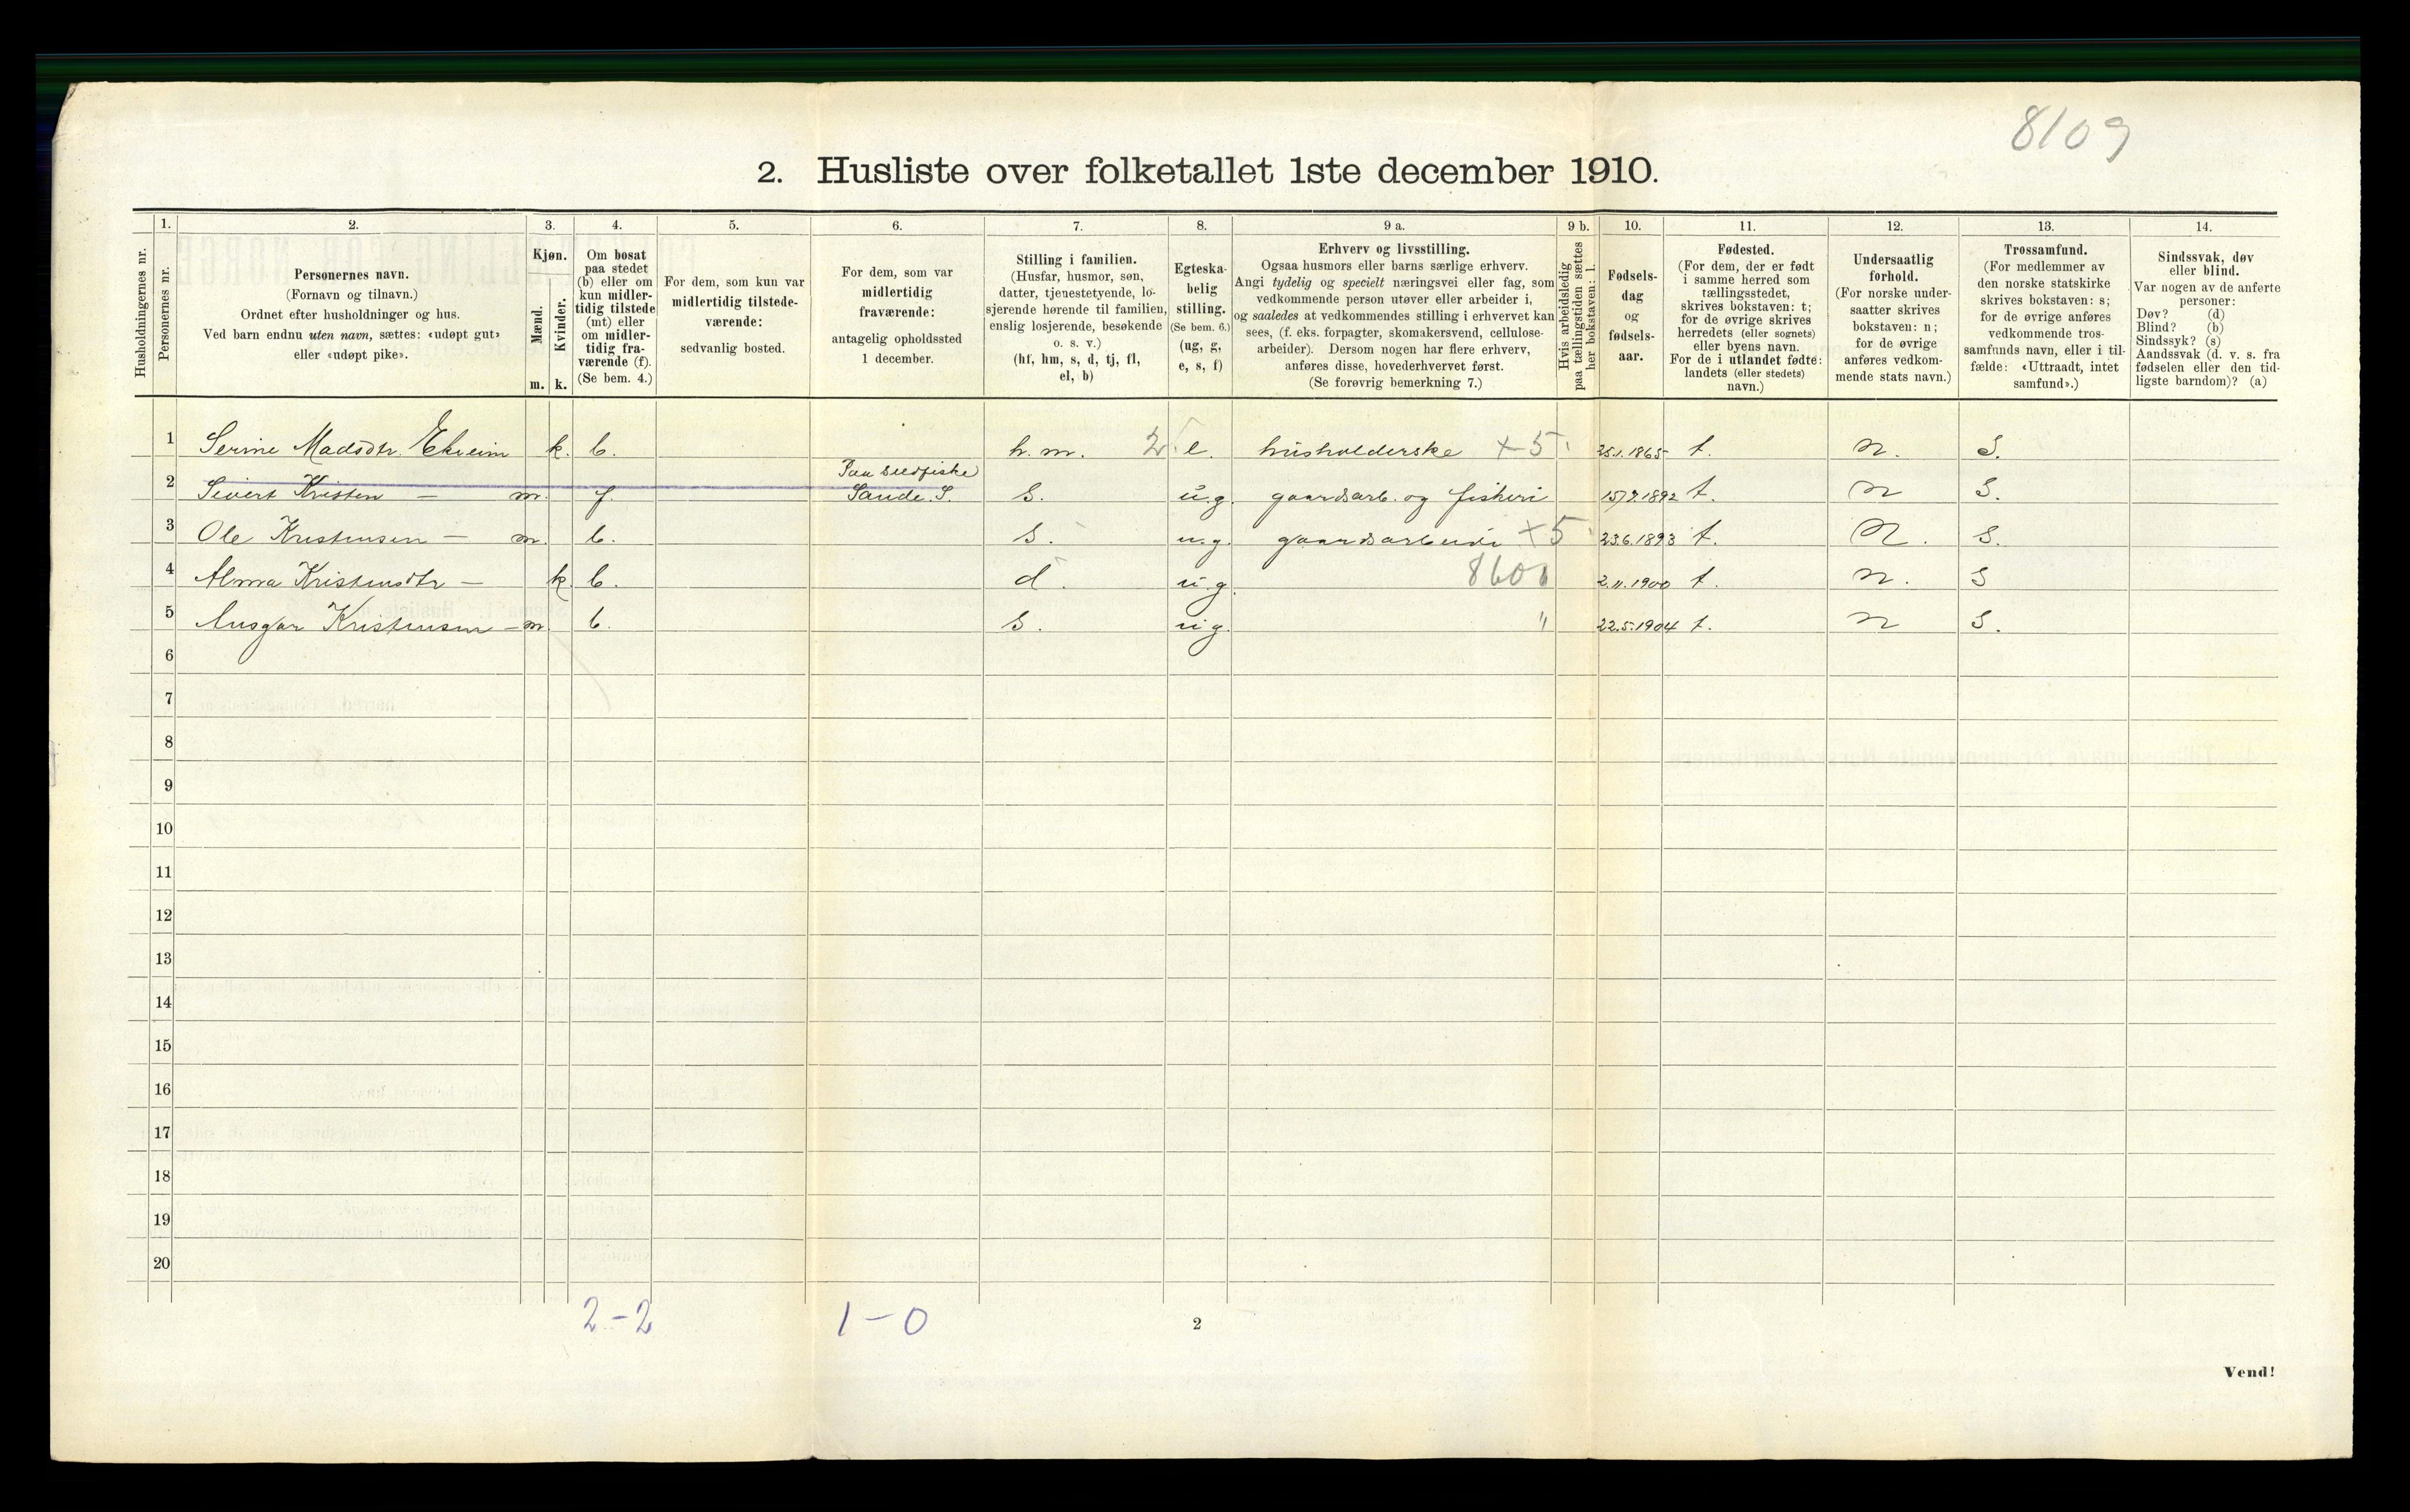 8109
2. Husliste over folketallet 1ste december 1910.
Husholdningernes nr.
1.
Personernes nr.
2.
Personernes navn.
(Fornavn og tilnavn.)
Ordnet efter husholdninger og hus.
Ved barn endnu uten navn, sættes: «udøpt gut»
eller «udøpt pike».
3.
Kjøn.
Mænd.
Kvinder.
m.
k.
4.
Om bosat
paa stedet
(b) eller om
kun midler-
tidig tilstede
(mt) eller
om midler-
tidig fra-
værende (f).
(Se bem. 4.)
5.
For dem, som kun var
midlertidig tilstede-
værende:
sedvanlig bosted.
6.
For dem, som var
midlertidig
fraværende:
antagelig opholdssted
1 december.
7.
Stilling i familien.
(Husfar, husmor, søn,
datter, tjenestetyende, lo-
sjerende hørende til familien,
enslig losjerende, besøkende
o. s. v.)
(hf, hm, s, d, tj, fl,
el, b)
8.
Egteska-
belig
stilling.
(Se bem. 6.)
(ug, g,
e, s, f)
9 a.
Erhverv og livsstilling.
Ogsaa husmors eller barns særlige erhverv.
Angi tydelig og specielt næringsvei eller fag, som
vedkommende person utøver eller arbeider i,
og saaledes at vedkommendes stilling i erhvervet kan
sees, (f. eks. forpagter, skomakersvend, cellulose-
arbeider). Dersom nogen har flere erhverv,
anføres disse, hovederhvervet først.
(Se forøvrig bemerkning 7.)
9 b.
Hvis arbeidsledig
paa tællingstiden sættes
her bokstaven: l.
10.
Fødsels-
dag
og
fødsels-
aar.
11.
Fødested.
(For dem, der er født
i samme herred som
tællingsstedet,
skrives bokstaven: t;
for de øvrige skrives
herredets (eller sognets)
eller byens navn.
For de i utlandet fødte:
landets (eller stedets)
navn.)
12.
Undersaatlig
forhold.
(For norske under-
saatter skrives
bokstaven: n;
for de øvrige
anføres vedkom-
mende stats navn.)
13.
Trossamfund.
(For medlemmer av
den norske statskirke
skrives bokstaven: s;
for de øvrige anføres
vedkommende tros-
samfunds navn, eller i til-
fælde: «Uttraadt, intet
samfund».)
14.
Sindssvak, døv
eller blind.
Var nogen av de anførte
personer:
Døv? (d)
Blind? (b)
Sindssyk? (s)
Aandssvak (d. v. s. fra
fødselen eller den tid-
ligste barndom)? (a)
1 Serine Madsdtr. Ekreim k. b. h.m. 2 e. husholderske +5 25.1.1865 t. n. S.
Paa sildfiske
2 Sivert Kristen — m. f. Sande. S. s. u.g. gaardsarb. og fiskeri 15/9.1892 t. n S.
3 Ole Kristensen — m. b. s. u.g. gaardsarbeide +5 23.6.1893 t. n. S.
4 Alma Kristensdtr — k. b. d. u.g. 8600 2.11.1900 t. n. S
5 Ansgar Kristensen — m b. s. u.g. " 22.5.1904 t. n S.
6
7
8
9
10
11
12
13
14
15
16
17
18
19
20
2-2 1-0
2
Vend!